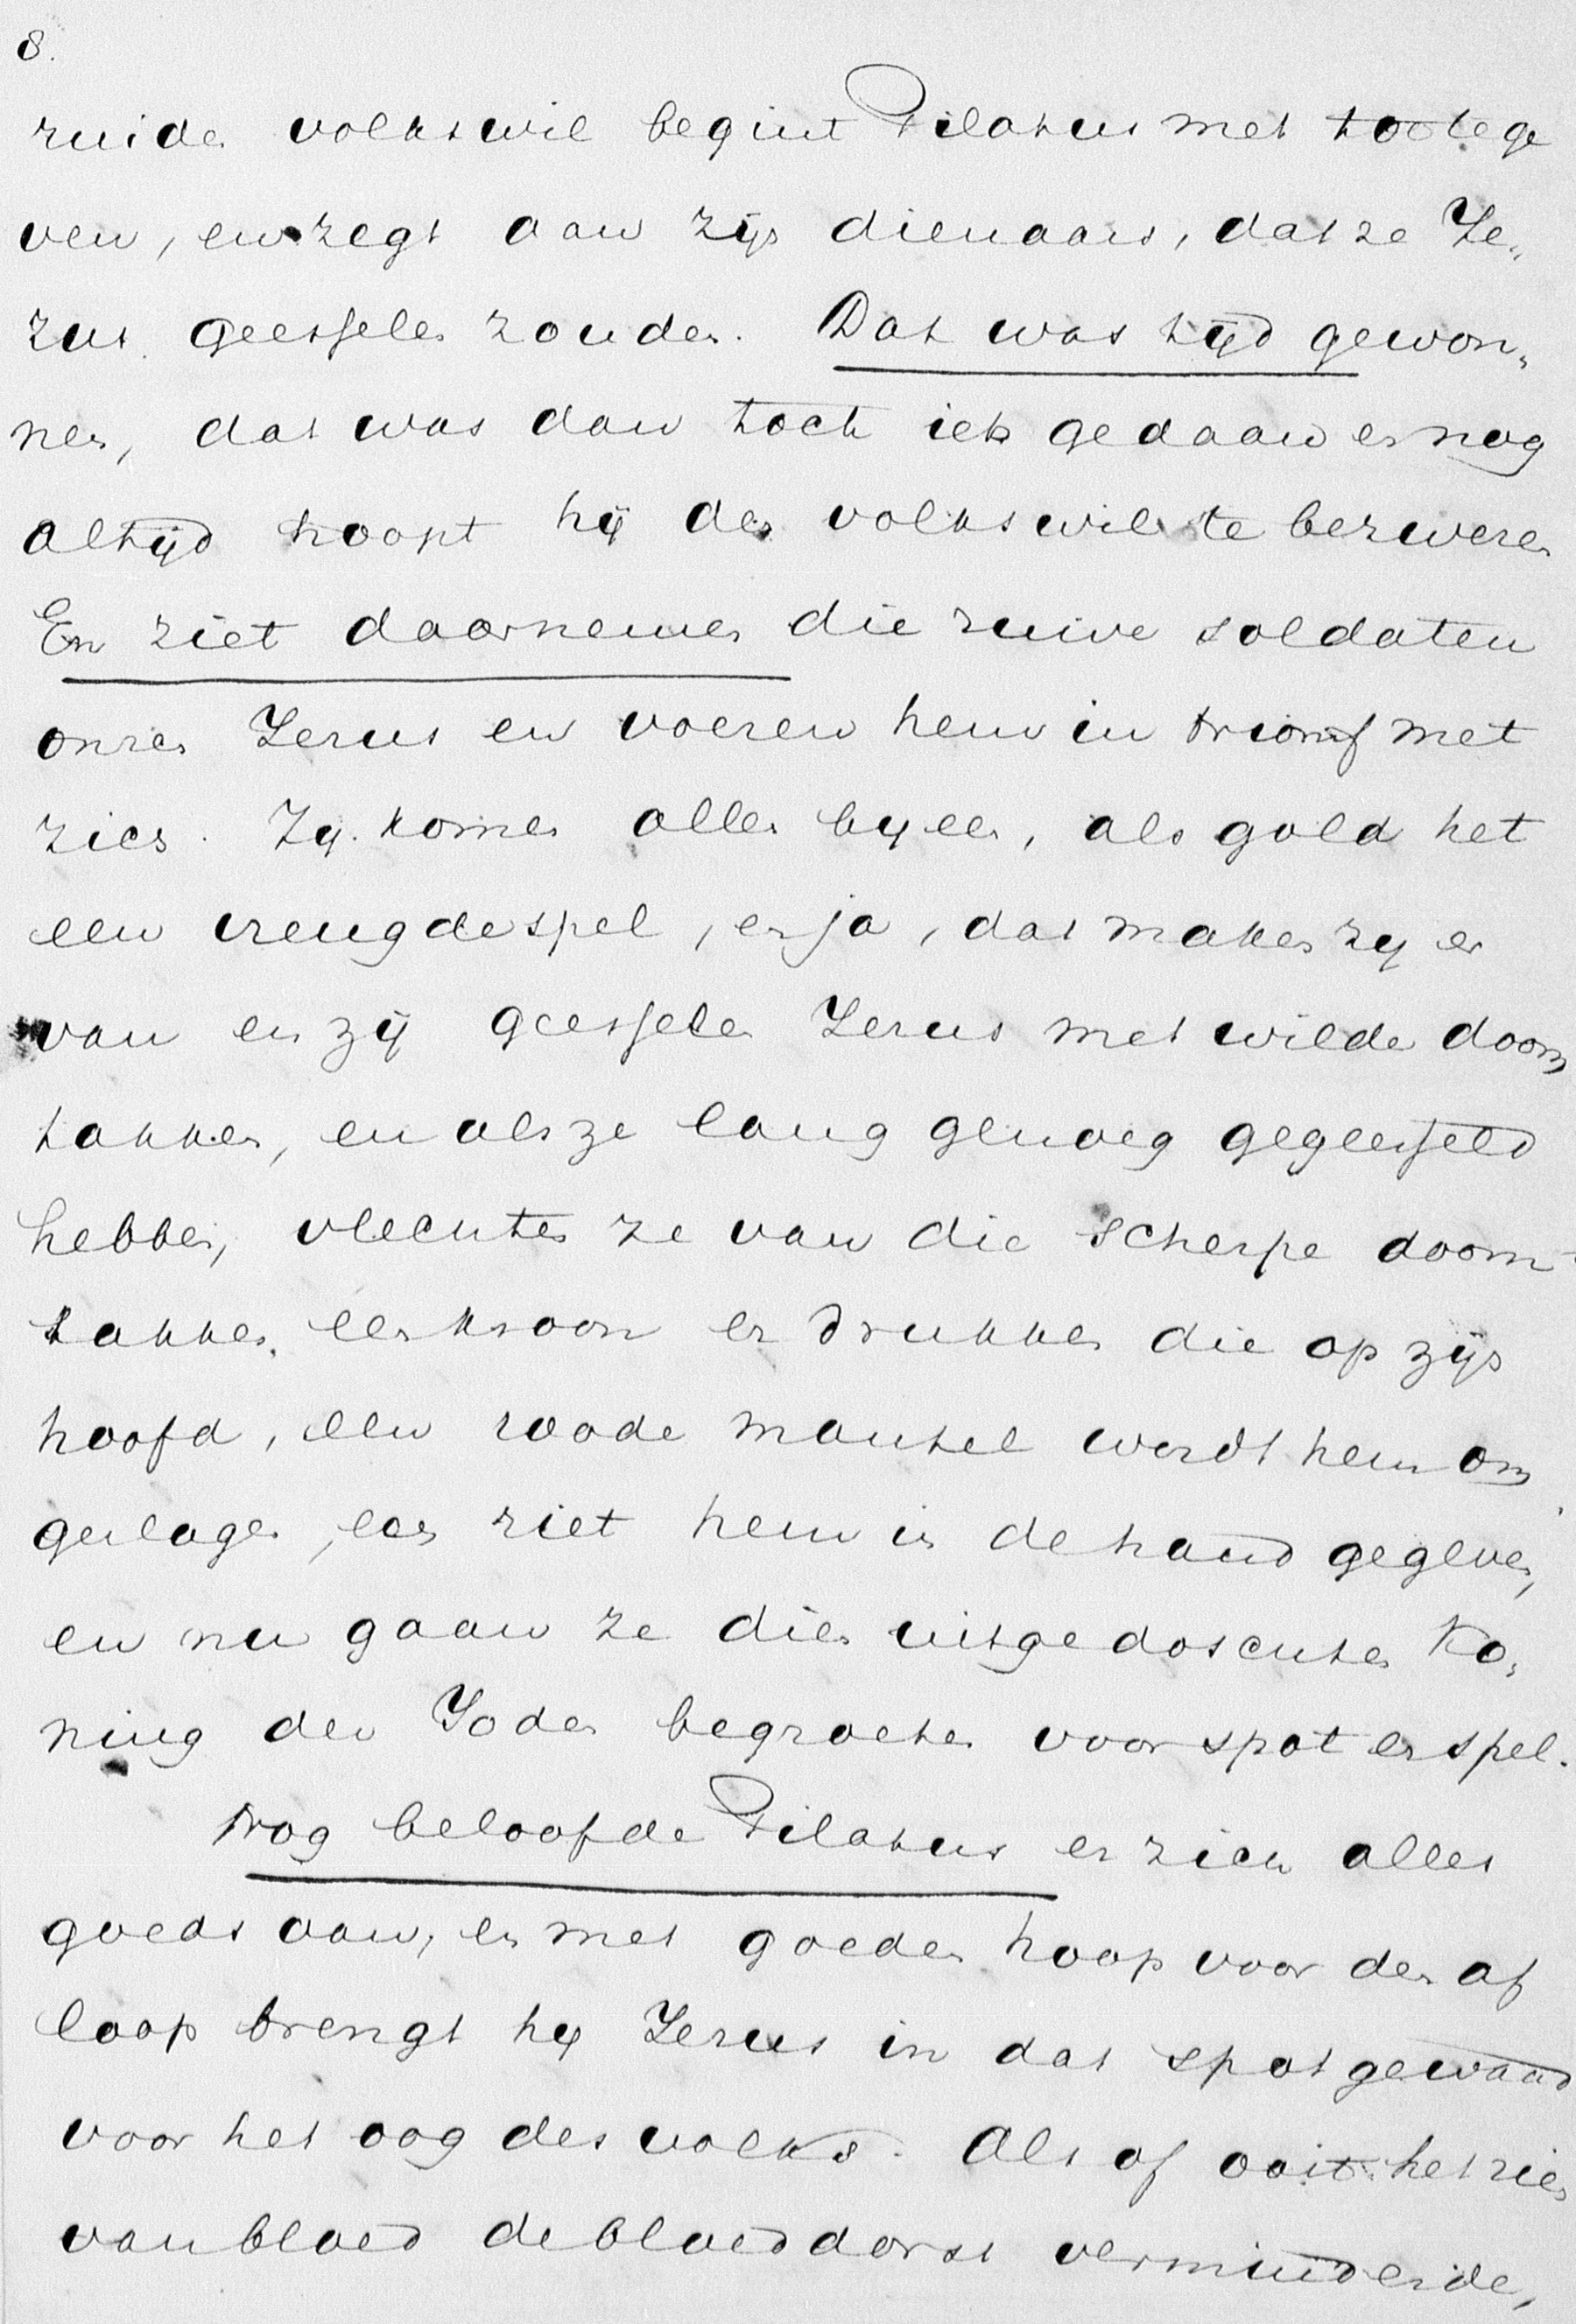 8.
ruide volkswil begint Pilatus met toe te ge
ven, en zegt aan zijn dienaars, dat ze Je„
zus geesselen zouden. Dat was tijd gewon„
nen, dat was dan toch iets gedaan en nog
altijd hoopt hij den volkswil te bezweren
En ziet daar nemen die ruwe soldaten
onzen Jezus en voeren hem in triomf met
zich. Zij komen allen bijeen, als gold het
een vreugdespel, en ja, dat maken zij er
van en zij geesselen Jezus met wilde doorn
takken, en als ze lang genoeg gegeesseld
hebben, vlechten ze van die scherpe doorn-
takken een kroon en drukken die op zijn
hoofd, een roode mantel wordt hem om
geslagen, een riet hem in de hand gegeven,
en nu gaan ze dien uitgedoschten Ko„
ning der Joden begroeten voor spot en spel.
Nog beloofde Pilatus er zich alles
goeds van, en met goeden hoop voor den af
loop brengt hij Jezus in dat spotgewaad
voor het oog des volks. Als of ooit het zien
van bloed de bloeddorst verminderde,